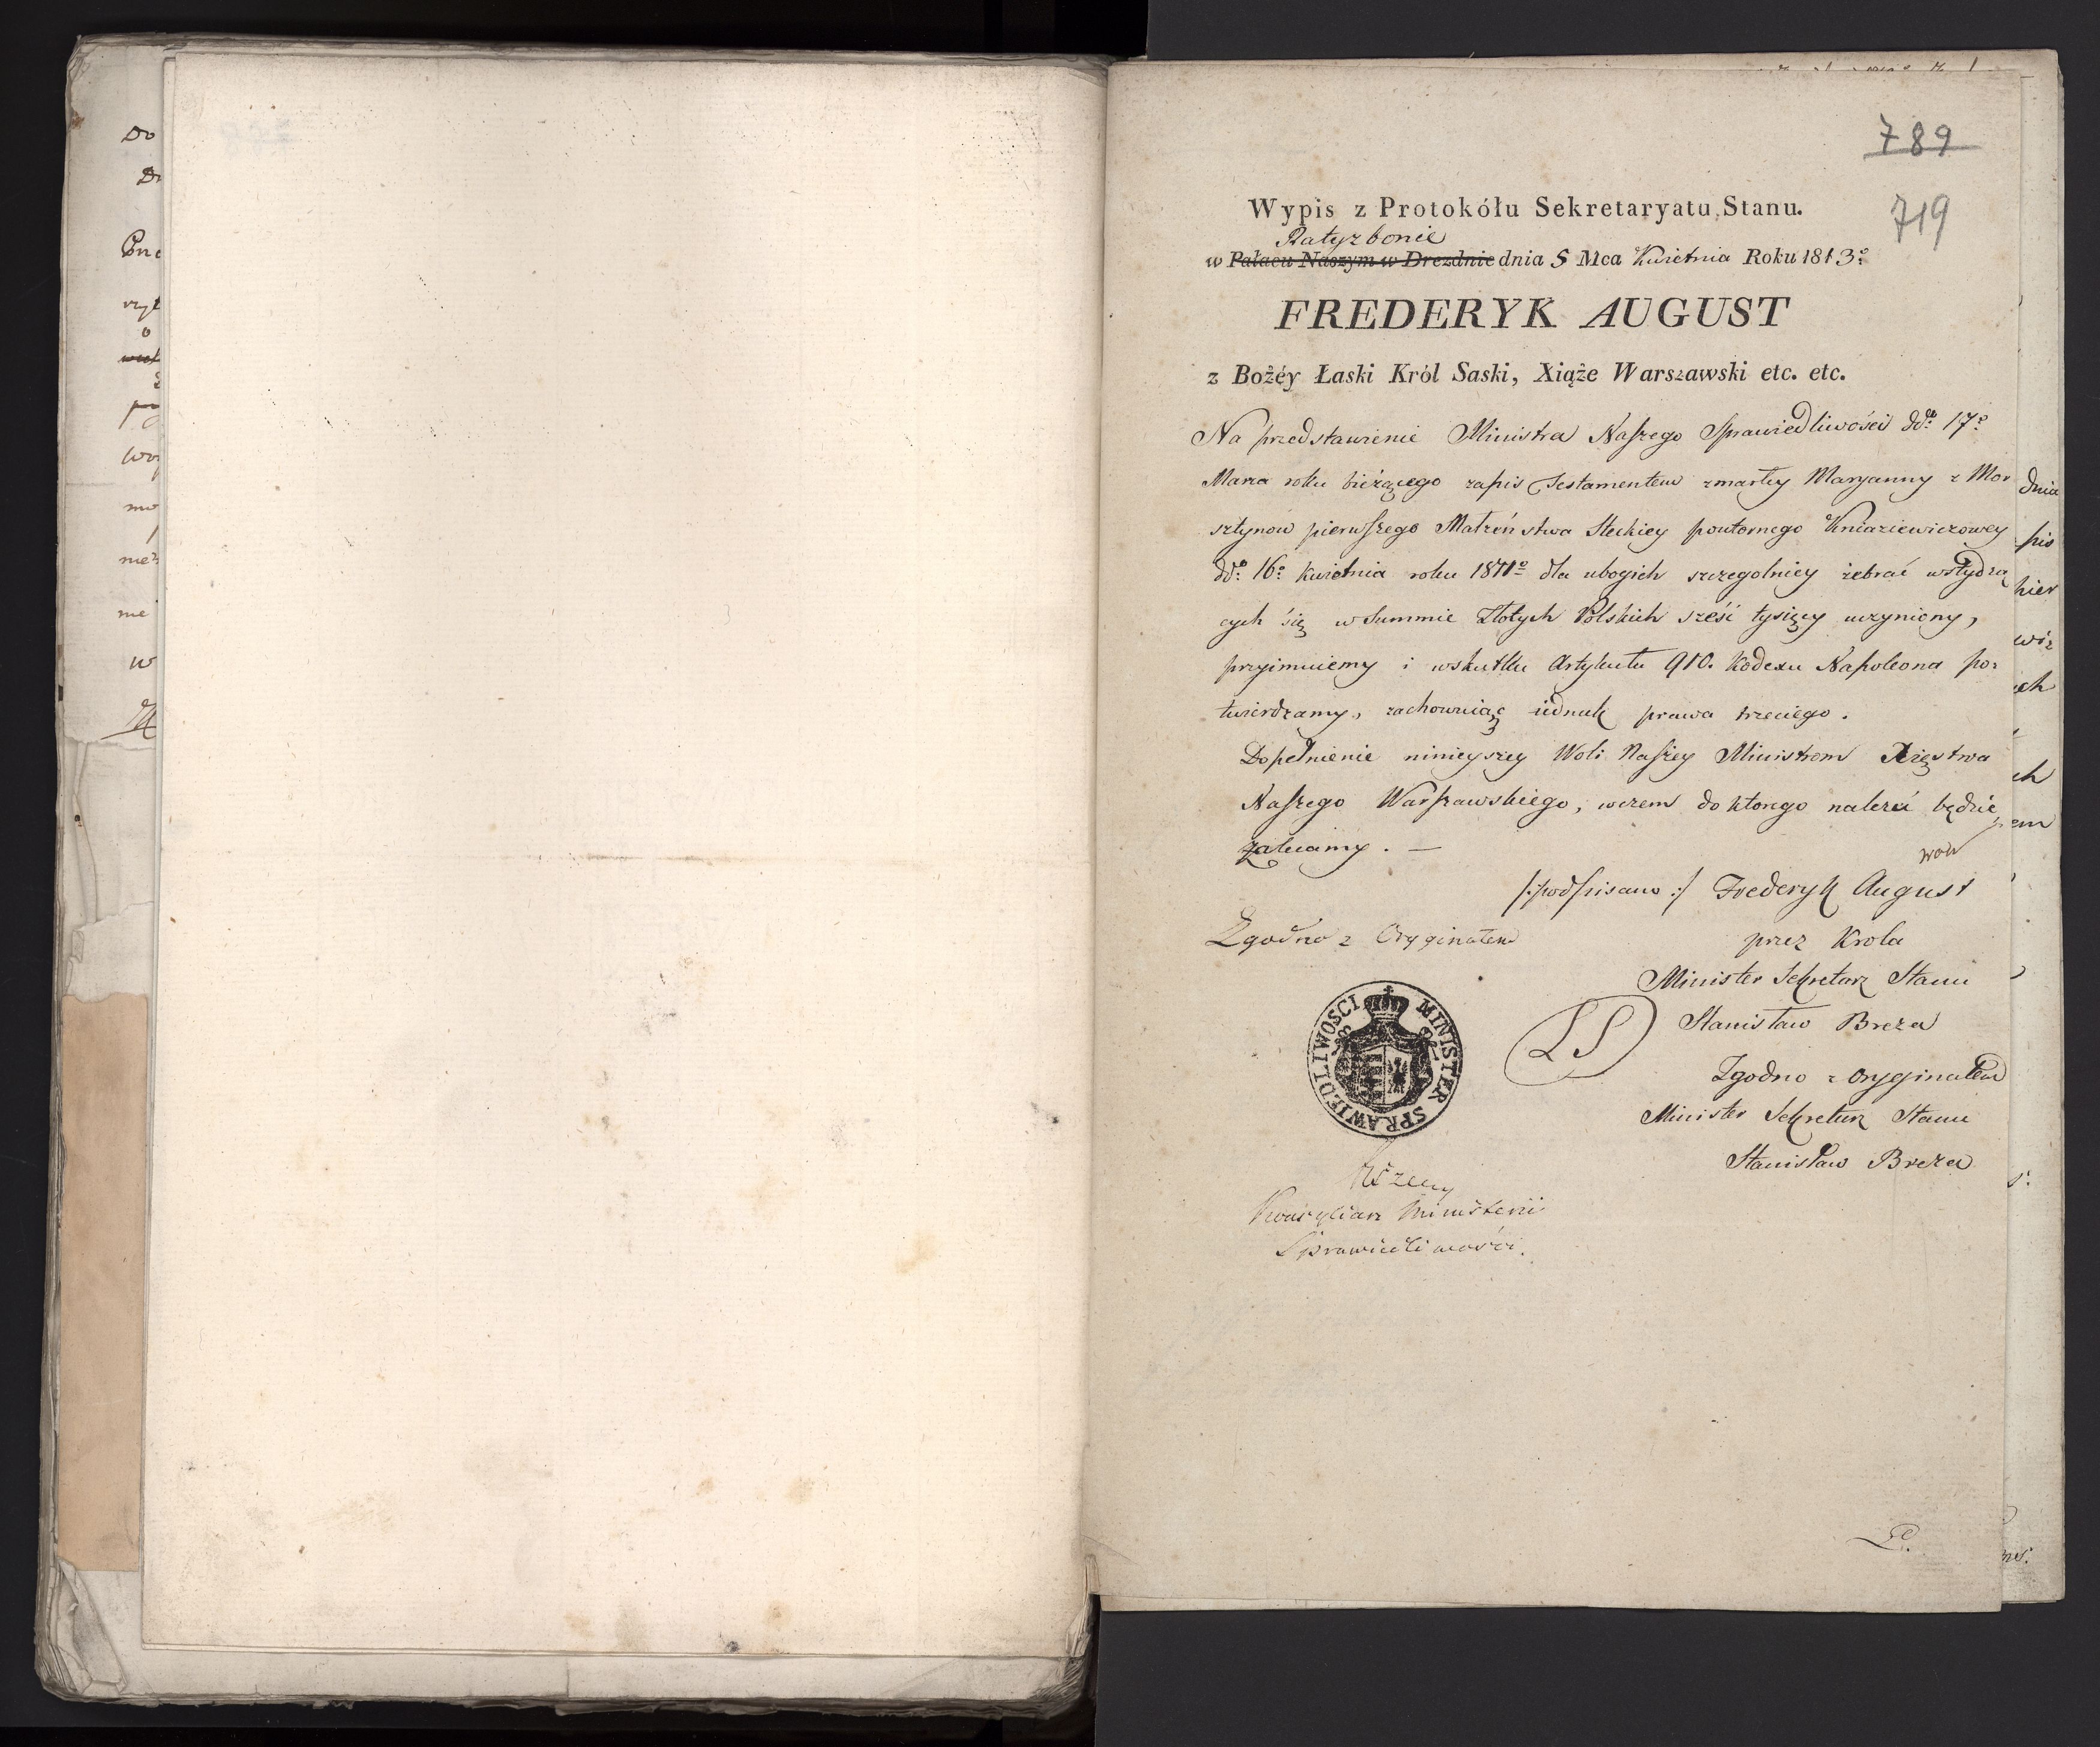 Do
D
wo
me
w
789
719
Wypis z Protokółu Sekretaryatu Stanu.
Ratyzbonie
w Pałacu Naszym w Dreznie dnia 5 Mca Kwietnia Roku 1813º
FREDERYK AUGUST
z Bożéy Łaski Król Saski, Xiąże Warszawski etc. etc.
Na przedstawienie Ministra Naszego Sprawiedliwości ddº 17º
Marca roku bieżącego zapis Testamentem zmarłey Maryanny z Mor
sztynow pierwszego Małżeństwa Steckiey powtornego Kniaziewiczowey
ddº 16º Kwietnia roku 1811º dla ubogich szczegolniey żebrać wstydzą
cych się w Summie Złotych Polskich sześć tysięcy uczyniony,
przyimuiemy i wskutku Artykułu 910. Kodexu Napoleona po-
twierdzamy, zachowuiąc iednak prawa trzeciego.
Dopełnienie ninieyszey Woli Naszey Ministrom Xięstwa
Naszego Warszawskiego, wczem do ktorego należeć będzie
zalecamy. —
/:podpisano:/ Frederyk August
Zgodno z Oryginałem
przez Krola
Minister Sekretarz Stanu
MINISTER SPRAWIEDLIWOSCI
LS
Stanisław Breza
Zgodno z Oryginałem
Minister Sekretarz Stanu
Stanisław Breza
Ministerii
Sprawiedliwości.
dnia
pis
ch